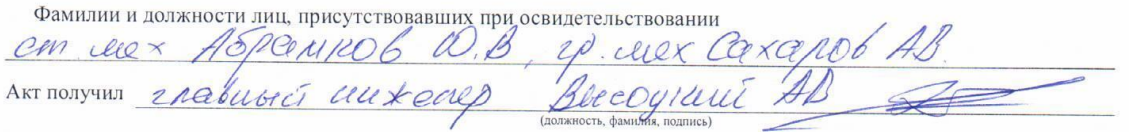 Фамилии и должности лиц, присутствовавших при освидетельствовании
ст. мех Абрамков Ю.В, гр. мех Сахаров АВ.
Акт получил главный инженер Высоцкий АВ
(должность, фамилия, подпись)